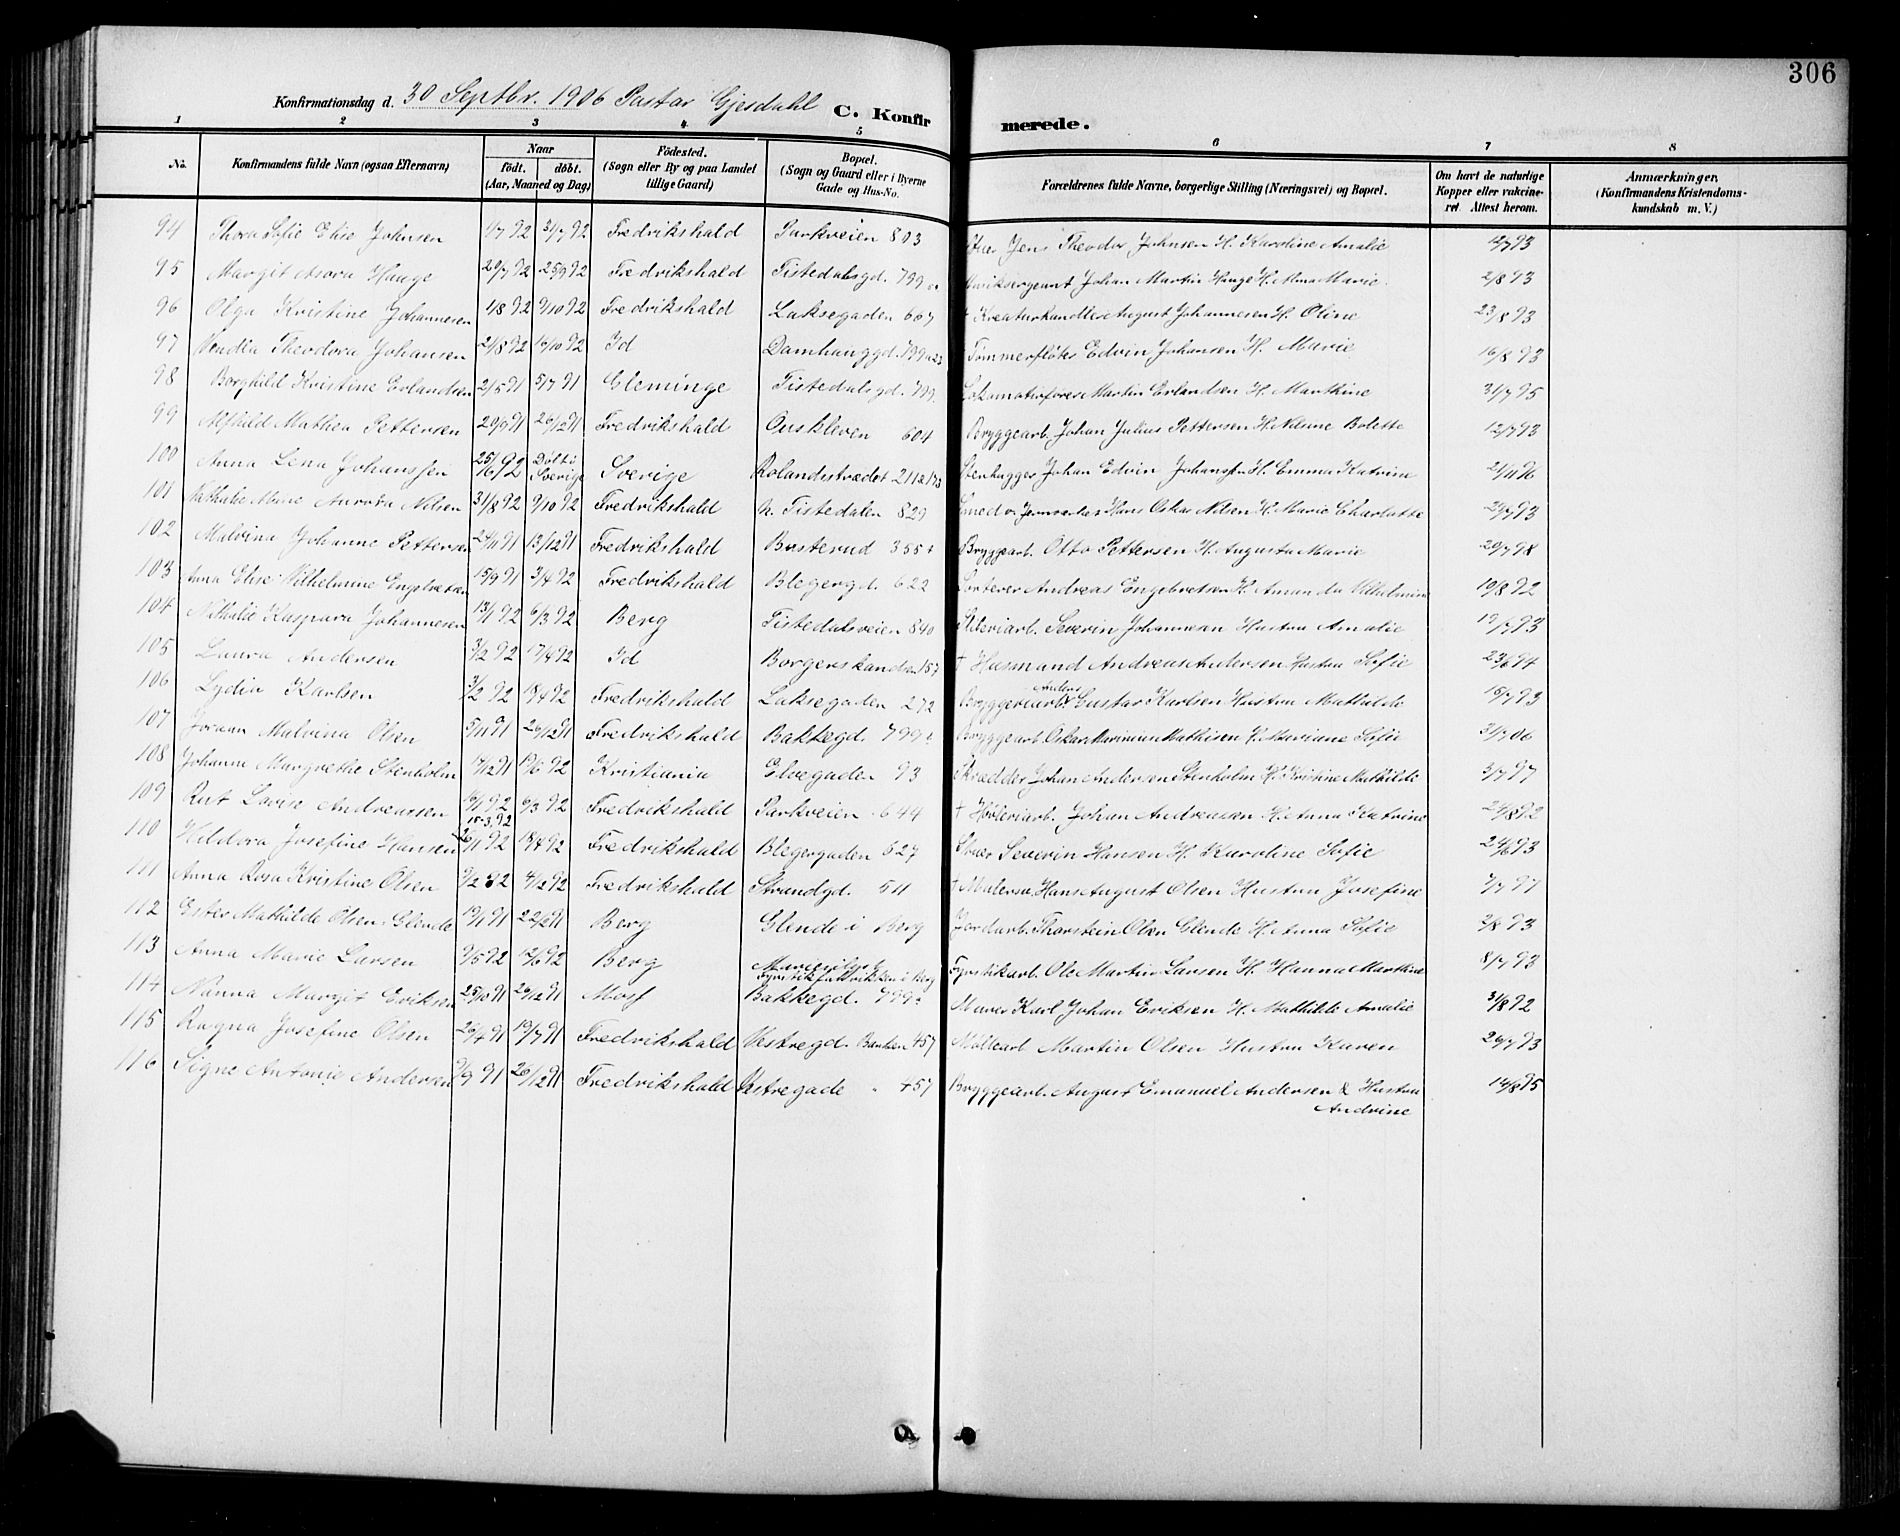 306
Konfirmationsdag d. 30 Septbr. 1906 Pastor Gjesdahl C. Konfirmerede.
1 2 3 4 5 6 7 8
No. Konfirmandens fulde Navn (ogsaa Efternavn) Naar født. døbt. (Aar, Maaned og Dag) Födested. (Sogn eller By og paa Landet tillige Gaard) Bopæl. (Sogn og Gaard eller i Byerne Gade og Hus-No. Forældrenes fulde Navne, borgerlige Stilling (Næringsvei) og Bopæl. Om havt de naturlige Kopper eller vakcineret Attest herom. Anmærkninger, (Konfirmandens Kristendomskundskab m. V.)
94 Thora Sofie Elise Johnsen 1/7 92 31/7 92 Fredrikshald Parkveien 803 Jens Theodor Johnsen H. Karoline Amalie 12/7 93
95 Margit Asora Hauge 29/7 92 25/9 92 Fredrikshald Tistedalsgd. 799 Johan Martin Hauge H. Alma Marie 2/8 93
96 Olga Kristine Johannesen 1/8 92 9/10 92 Fredrikshald Laksegaden 667 † Kreaturhandler August Johannesen H. Oline 23/8 93
97 Theodora Johansen 21/8 92 16/10 92 Id Damhauggd. 799 a 23 Tømmerfløter Edvin Johansen H. Marie 16/8 93
98 Borghild Kristine Erlandsen 2/5 91 5/7 91 Gleminge Tistedalsgd. 799 Lokomotivfører Martin Erlandsen H. Marthine 31/7 95
99 Alfhild Mathea Pettersen 20/9 91 26/12 91 Fredrikshald Ouskleven 604 Bryggearb. Johan Julius Pettersen H. Bolette 12/7 93
100 Anna Lena Johanssen 25/6 92 Döbt i Sverige Sverige Rolandsstrædet 211 Stenhugger Johan Edvin Johanssen H. Emma Katrine 21/11 96
101 Nathalie Marie Aurora Nilsen 31/8 92 9/10 92 Fredrikshald n. Tistedalen 829 Smed v. Jernverket Hans Oskar Nilsen H. Marie Charlotte 25/7 93
102 Malvina Johanne Pettersen 24/11 91 13/12 91 Fredrikshald Busterud 355 Bryggearb. Otto Pettersen H. Augusta Marie 29/7 98
103 Anna Elise Vilhelmine Engebretsen 15/9 91 3/4 92 Fredrikshald Blegergd. 622 Sorterer Andreas Engebretsen H. Amanda Vilhelmine 19/8 92
104 Nathalie Kaspara Johannesen 13/1 92 6/3 92 Berg Tistedalsveien 840 Sliberiarb. Severin Johannesen Hustru Amalie 19/7 93
105 Laura Andersen 3/2 92 17/4 92 Id Borgerskandsen 157 † Husmand Andreas Andersen Hustru Sofie 23/6 94
106 Lydia Karlsen 3/2 92 18/4 92 Fredrikshald Laksegaden 272 Bryggeriarb. Anders Gustav Karlsen Hustru Mathilde 15/7 93
107 Malvina Olsen 5/11 91 26/12 91 Fredrikshald Bakkegd. 799 Bryggearb. Oskar Marinius Mathisen H. Mariane Sofie 31/7 06
108 Johanne Margrethe Stenholm 17/12 91 19/6 92 Kristiania Elvegaden 93 Skrædder Johan Andersen Stenholm H. Kristine Mathilde 3/7 97
109 Rut Lovise Andreassen 16/1 92 6/3 92 Fredrikshald Parkveien 644 † Høvleriarb. Johan Andreassen H. Anna Katrine 24/8 92
110 Hildora Josefine Hansen 15-3.92 26/1 92 18/4 92 Fredrikshald Blegergaden 627 Stuer Severin Hansen H. Karoline Sofie 24/6 93
111 Anna Rosa Kristine Olsen 9/2 92 4/12 92 Fredrikshald Strandgd. 511 † Hans August Olsen Hustru Josefine 7/7 97
112 Ester Mathilde Olsen Glende 19/1 91 22/2 91 Berg Glende i Berg Jordarb. Thorstein Olsen Glende H. Anna Sofie 3/8 93
113 Anna Marie Larsen 9/5 92 12/6 92 Berg Fyrstikfabrikken i Berg Fyrstikarb. Ole Martin Larsen H. Hanna Marthine 8/7 93
114 Nanna Margit Eriksen 25/10 91 26/12 91 Moss Bakkegd. 799 Murer Karl Johan Eriksen H. Mathilde Amalie 31/8 92
115 Ragna Josefine Olsen 26/4 91 19/7 91 Fredrikshald Vestregd. Banken 457 Møllearb Martin Olsen Hustru Karen 26/7 93
116 Signe Antonie Andersen 9/9 91 26/12 91 Fredrikshald Vestregade " 457 Bryggearb. August Emanuel Andersen & Hustru Andrine 14/8 95